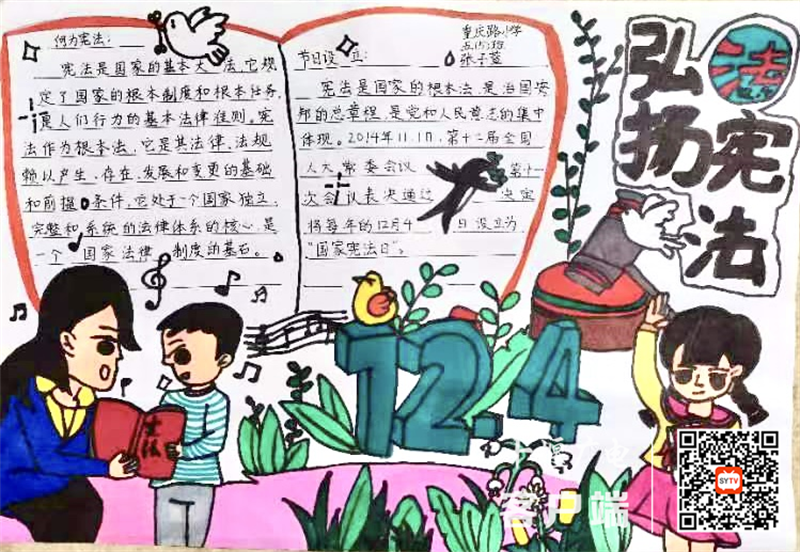 何为宪法：
宪法是国家的基本大法,它规
定了国家的根本制度和根本任务,
是人们行为的基本法律准则。宪
法作为根本法,它是其法律、法规
赖以产生、存在、发展和变更的基础
和前提条件,它处于一个国家独立、
完整和系统的法律体系的核心,是
一个国家法律制度的基石。
重庆路小学
张子萱
节日设立：
宪法是国家的根本法,是治国安
邦的总章程,是党和人民意志的集中
体现。2014年11.1日,第十二届全国
人大常委会议 第十一
次会议表决通过 决定
将每年的12月4日设立为
“国家宪法日”。
法
弘扬
宪法
12.4
宪法
十堰广电
客户端
SYTV